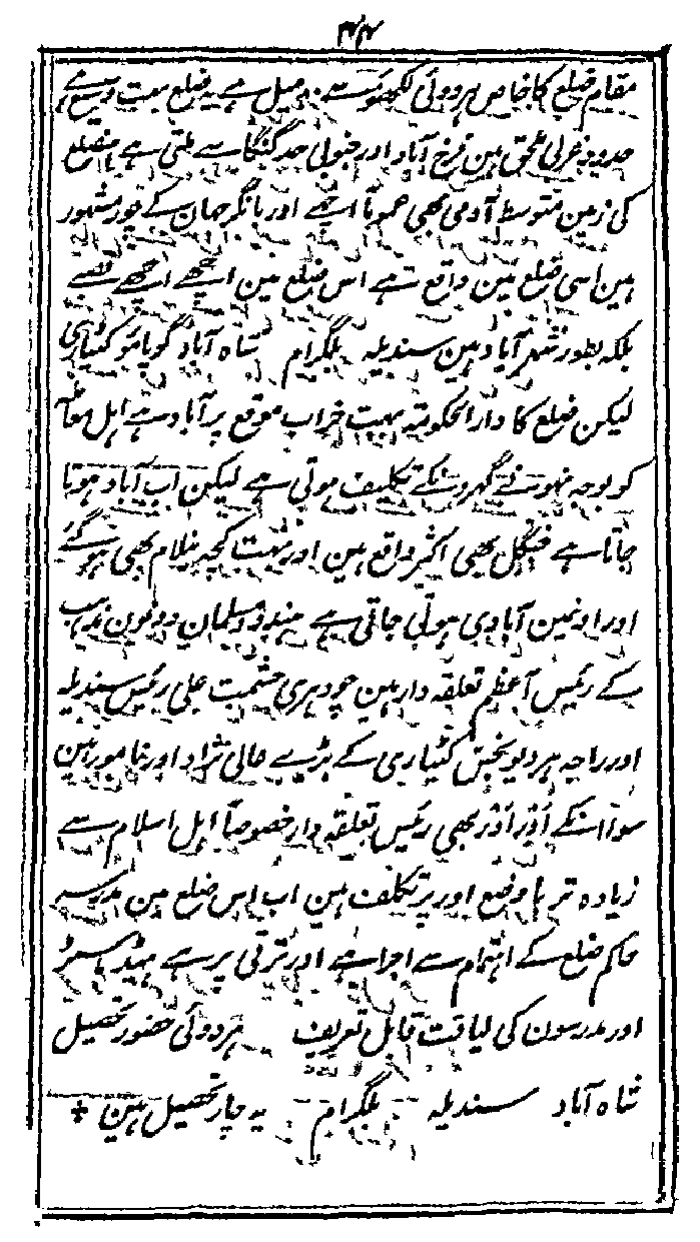 ۴۴
مقام ضلع کا خاص ہردوئی لکھنؤ سے میل ہے یہ ضلع بہت وسیع ہے
حدود غربی ملحق ہین فرخ آباد اور جنوبی حد گنگا سے ملتی ہے یا ضلع
کی زمین متوسط آدمی بھی عموماً اچھے اور بانگر جہان کے چور مشہور
ہین اسی ضلع مین واقع ہے اس ضلع مین اچھے اچھے قصبے
بلکہ بطور شہر آباد ہین سندیلہ بلگرام شاہ آباد گوپامئو کٹیاری
لیکن ضلع کا دار الحکومتہ بہت خراب موقع پر آباد ہے اہل معاملہ
کو بوجہ نہونے گھرونکے تکلیف ہوتی ہے لیکن اب آباد ہوتا
جاتا ہے جنگل بھی اکثر واقع ہین اور بہت کچھ نیلام بھی ہو گئے
اور اونمین آبادی ہوتی جاتی ہے ہندو و مسلمان دونون مذہب
کے رئیس اعظم تعلقہ دار ہین چودہری حشمت علی رئیس سندیلہ
اور راجہ ہردیو بخش کٹیاری کے بڑے عالی نژاد اور نامور ہین
سوا انکے اَور اَور بھی رئیس تعلقہ دار خصوصاً اہل اسلام سے
زیادہ تر با وضع اور پر تکلف ہین اب اس ضلع مین مدرسہ
حاکم ضلع کے اہتمام سے اجرا ہے اور ترقی پر ہے ہیڈ ماسٹر
اور مدرسون کی لیاقت قابل تعریف ہردوئی حضور تحصیل
شاہ آباد سندیلہ بلگرام یہ چار تحصیل ہین +